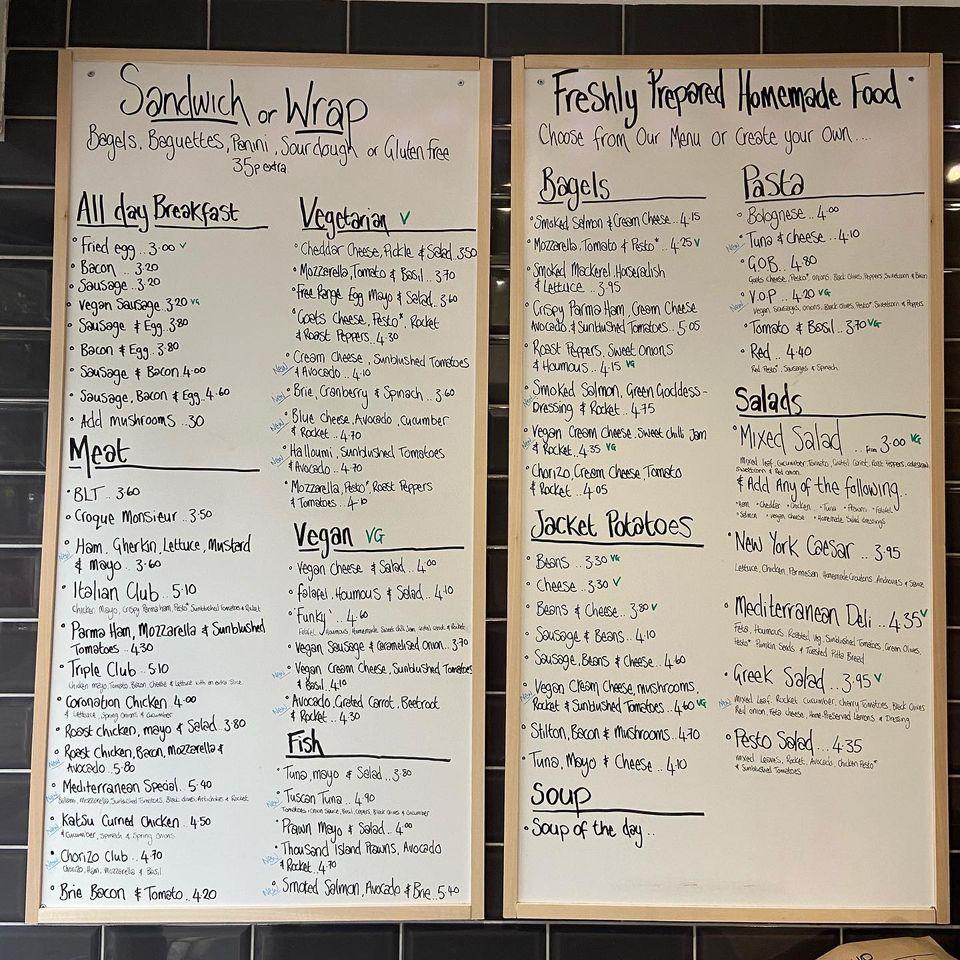 Sandwich or Wrap
Bagels, Baguettes, Panini, Sourdough or Gluten free
35p extra
All day Breakfast
Fried egg .. 3.00 V
Bacon .. 3.20
Sausage .. 3.20
Vegan Sausage .. 3.20 VG
Sausage & Egg .. 3.80
Bacon & Egg .. 3.80
Sausage & Bacon .. 4.00
Sausage, Bacon & Egg .. 4.60
Add mushrooms .. 30
Meat
BLT .. 3.60
Croque Monsieur .. 3.50
New Ham, Gherkin, Lettuce, Mustard
& Mayo .. 3.60
Italian Club .. 5.10
Chicken Mayo, Crispy Parma ham, Pesto* Sunblushed Tomatoes & Rocket
Parma Ham, Mozzarella & Sunblushed
Tomatoes .. 4.30
Triple Club .. 5.10
Chicken mayo, Tomato, Bacon, Cheese & Lettuce with an extra Slice
Coronation Chicken .. 4.00
& Lettuce, Spring Onions & Cucumber
Roast chicken, mayo & Salad .. 3.80
Roast Chicken, Bacon, Mozzarella &
New Avocado .. 5.80
Mediterranean Special .. 5.40
New Salami, Mozzarella, Sunblushed Tomatoes, Black olives, Artichokes & Rocket
Katsu Curried Chicken .. 4.50
New & Cucumber, Spinach & Spring Onions
Chorizo Club .. 4.70
New Chorizo, Ham, Mozzarella & Basil
Brie Bacon & Tomato .. 4.20
Vegetarian V
Cheddar Cheese, Pickle & Salad 3.50
Mozzerella, Tomato & Basil .. 3.70
Free Range Egg Mayo & Salad .. 3.60
Goats Cheese, Pesto*, Rocket
& Roast Peppers .. 4.30
Cream Cheese, Sunblushed Tomatoes
New & Avocado .. 4.10
New Brie, Cranberry & Spinach .. 3.60
Blue Cheese, Avocado, Cucumber
New & Rocket .. 4.70
Halloumi, Sunblushed Tomatoes
New & Avocado .. 4.70
Mozzarella, Pesto*, Roast Peppers
& Tomatoes .. 4.10
Vegan VG
Vegan Cheese & Salad .. 4.00
Falafel, Houmous & Salad .. 4.10
'Funky' .. 4.60
Falafel, Houmous, Homemade Sweet chilli Jam, Grated carrot & Rocket
Vegan Sausage & Caramelised Onion .. 3.70
Vegan Cream Cheese, Sunblushed Tomatoes
New & Basil .. 4.10
Avocado, Grated Carrot, Beetroot
New & Rocket .. 4.30
Fish
Tuna, mayo & Salad .. 3.80
Tuscan Tuna .. 4.90
New Tomatoes, Onion, Basil, Capers, Black Olives & Cucumber
Prawn Mayo & Salad .. 4.00
Thousand Island Prawns, Avocado
New & Rocket .. 4.70
New Smoked Salmon, Avocado & Brie .. 5.40
Freshly Prepared Homemade Food
Choose from Our Menu or Create your Own....
Bagels
Smoked Salmon & Cream Cheese .. 4.15
Mozzarella, Tomato & Pesto* .. 4.25 V
Smoked Mackerel, Horseradish
& Lettuce .. 3.95
Crispy Parma Ham, Cream Cheese
Avocado & Sunblushed Tomatoes .. 5.05
Roast Peppers, Sweet Onions
& Houmous .. 4.15 VG
Smoked Salmon, Green Goddess-
New Dressing & Rocket .. 4.75
Vegan Cream Cheese, Sweet chilli Jam
New & Rocket .. 4.35 VG
Chorizo, Cream Cheese Tomato
& Rocket .. 4.05
Jacket Potatoes
Beans .. 3.30 VG
Cheese .. 3.30 V
Beans & Cheese .. 3.80 V
Sausage & Beans .. 4.10
Sausage, Beans & Cheese .. 4.60
Vegan Cream Cheese, mushrooms,
New Rocket & Sunblushed Tomatoes .. 4.60 VG
Stilton, Bacon & Mushrooms .. 4.70
Tuna, Mayo & Cheese .. 4.10
Soup
Soup of the day ..
Pasta
Bolognese .. 4.00
New Tuna & Cheese .. 4.10
G.O.B .. 4.80
Goats Cheese, Pesto*, Onions, Black Olives, Peppers, Sweetcorn & Bacon
New V.O.P .. 4.20 VG
Vegan Sausages, Onions, Black Olives, Pesto*, Sweetcorn & Peppers
Tomato & Basil .. 3.70 VG
Red .. 4.40
Red Pesto*, Sausages & Spinach
Salads
Mixed Salad .. from 3.00 VG
Mixed leaf, Cucumber, Tomato, Grated Carrot, Roast Peppers, coleslaw
Sweetcorn & Red onion
& Add Any of the following ..
Ham Cheddar Chicken Tuna Prawns Falafel
Salmon vegan cheese Homemade Salad dressings
New York Caesar .. 3.95
Lettuce, Chicken, Parmesan, Homemade Croutons, Anchovies & Sauce
Mediterranean Deli .. 4.35 V
Feta, Houmous, Roasted Veg, Sunblushed Tomatoes, Green Olives,
Pesto* Pumpkin Seeds & Toasted Pitta Bread
Greek Salad .. 3.95 V
New Mixed Leaf, Rocket, cucumber, cherry Tomatoes, Black Olives
Red onion, Feta cheese, Home-Preserved Lemons & Dressing
Pesto Salad ... 4.35
Mixed Leaves, Rocket, Avocado, Chicken Pesto*
& Sunblushed Tomatoes